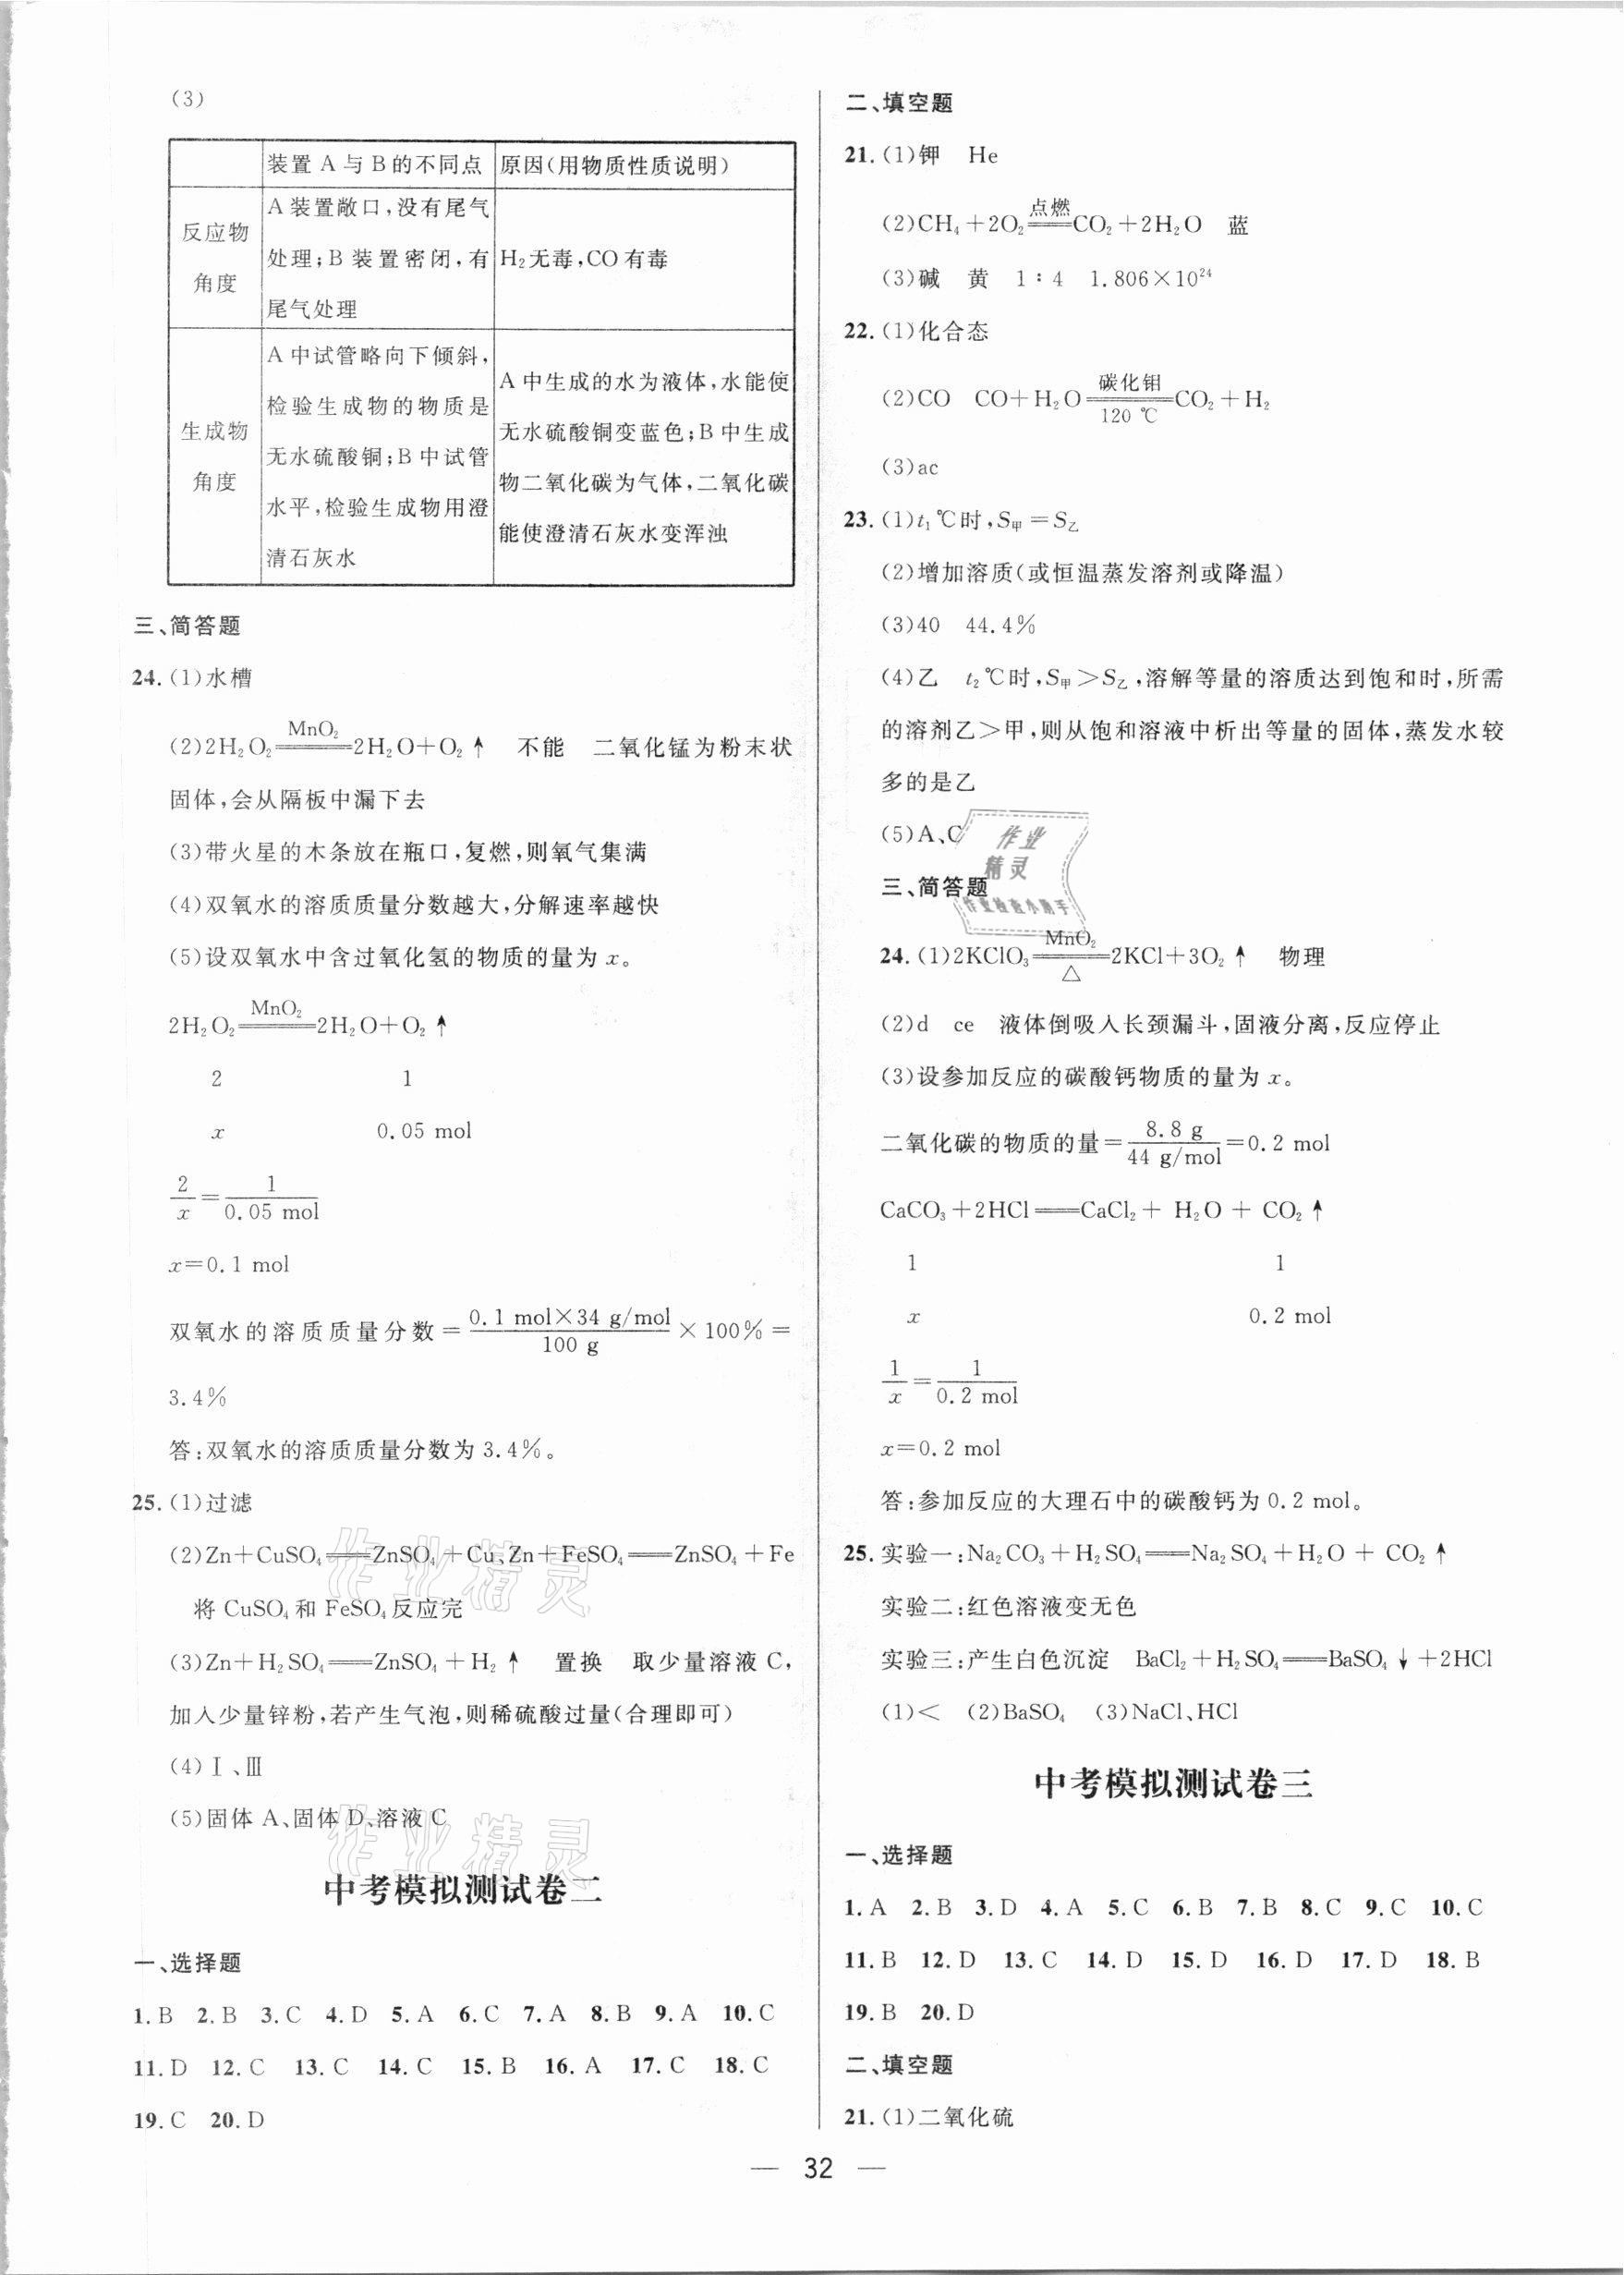 (3)
装置 A 与 B 的不同点 原因(用物质性质说明)
反应物
角度
A 装置敞口,没有尾气
处理;B 装置密闭,有
尾气处理
H₂无毒,CO 有毒
生成物
角度
A 中试管略向下倾斜,
检验生成物的物质是
无水硫酸铜;B 中试管
水平,检验生成物用澄
清石灰水
A 中生成的水为液体,水能使
无水硫酸铜变蓝色;B 中生成
物二氧化碳为气体,二氧化碳
能使澄清石灰水变浑浊
三、简答题
24.(1)水槽
(2)2H₂O₂ ══MnO₂══ 2H₂O+O₂↑ 不能 二氧化锰为粉末状
固体,会从隔板中漏下去
(3)带火星的木条放在瓶口,复燃,则氧气集满
(4)双氧水的溶质质量分数越大,分解速率越快
(5)设双氧水中含过氧化氢的物质的量为 x。
2H₂O₂ ══MnO₂══ 2H₂O+O₂↑
2 1
x 0.05 mol
2/x = 1/0.05 mol
x=0.1 mol
双氧水的溶质质量分数 = 0.1 mol×34 g/mol / 100 g ×100%=
3.4%
答:双氧水的溶质质量分数为 3.4%。
25.(1)过滤
(2)Zn+CuSO₄══ZnSO₄+Cu、Zn+FeSO₄══ZnSO₄+Fe
将 CuSO₄和 FeSO₄反应完
(3)Zn+H₂SO₄══ZnSO₄+H₂↑ 置换 取少量溶液 C,
加入少量锌粉,若产生气泡,则稀硫酸过量(合理即可)
(4)Ⅰ、Ⅲ
(5)固体 A、固体 D、溶液 C
作业精灵
作业精灵
中考模拟测试卷二
一、选择题
1.B 2.B 3.C 4.D 5.A 6.C 7.A 8.B 9.A 10.C
11.D 12.C 13.C 14.C 15.B 16.A 17.C 18.C
19.C 20.D
二、填空题
21.(1)钾 He
(2)CH₄+2O₂ ══点燃══ CO₂+2H₂O 蓝
(3)碱 黄 1∶4 1.806×10²⁴
22.(1)化合态
(2)CO CO+H₂O ══碳化钼/120 ℃══ CO₂+H₂
(3)ac
23.(1)t₁℃时,S甲=S乙
(2)增加溶质(或恒温蒸发溶剂或降温)
(3)40 44.4%
(4)乙 t₂℃时,S甲>S乙,溶解等量的溶质达到饱和时,所需
的溶剂乙>甲,则从饱和溶液中析出等量的固体,蒸发水较
多的是乙
(5)A、C
作业
精灵
作业检查小助手
三、简答题
24.(1)2KClO₃ ══MnO₂/△══ 2KCl+3O₂↑ 物理
(2)d ce 液体倒吸入长颈漏斗,固液分离,反应停止
(3)设参加反应的碳酸钙物质的量为 x。
二氧化碳的物质的量= 8.8 g / 44 g/mol =0.2 mol
CaCO₃+2HCl══CaCl₂+ H₂O + CO₂↑
1 1
x 0.2 mol
1/x = 1/0.2 mol
x=0.2 mol
答:参加反应的大理石中的碳酸钙为 0.2 mol。
25.实验一:Na₂CO₃+H₂SO₄══Na₂SO₄+H₂O + CO₂↑
实验二:红色溶液变无色
实验三:产生白色沉淀 BaCl₂+H₂SO₄══BaSO₄↓+2HCl
(1)< (2)BaSO₄ (3)NaCl、HCl
中考模拟测试卷三
一、选择题
1.A 2.B 3.D 4.A 5.C 6.B 7.B 8.C 9.C 10.C
11.B 12.D 13.C 14.D 15.D 16.D 17.D 18.B
19.B 20.D
二、填空题
21.(1)二氧化硫
— 32 —